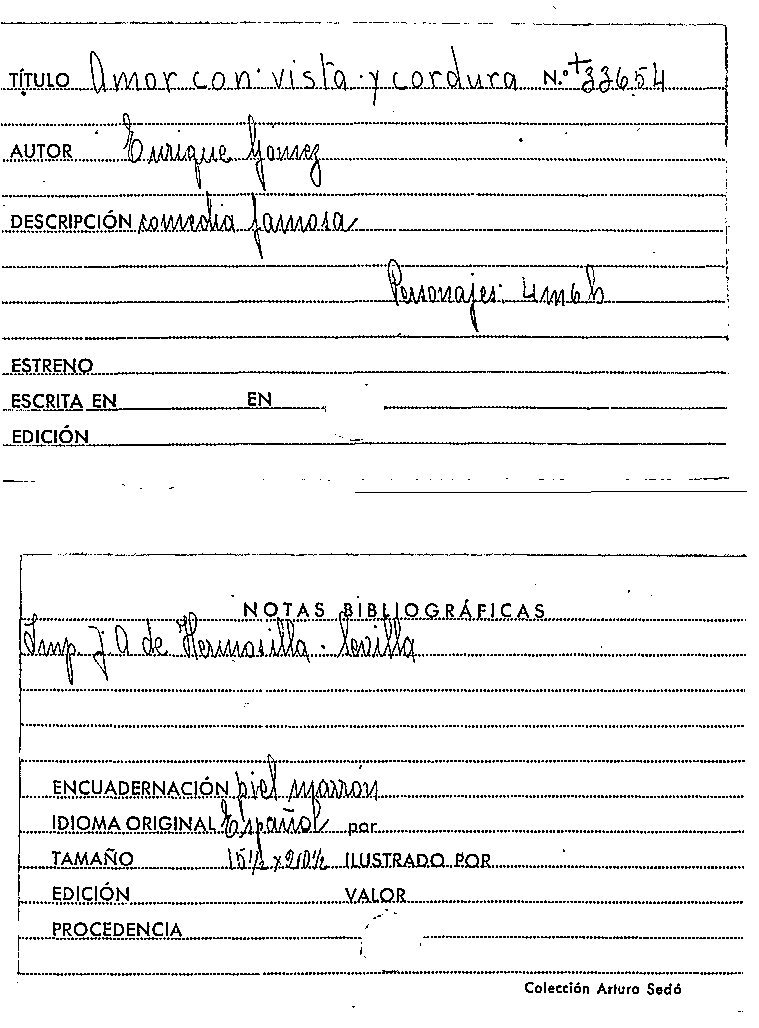 TÍTULO Amor con vista y cordura N.º +33654
AUTOR Enrique Gómez
DESCRIPCIÓN comedia famosa
Personajes: 4m6h
ESTRENO
ESCRITA EN EN
EDICIÓN
NOTAS BIBLIOGRÁFICAS
Imp. J A de Hermosilla - Sevilla
ENCUADERNACIÓN piel marrón
IDIOMA ORIGINAL Español por
TAMAÑO 15½ x 20½ ILUSTRADO POR
EDICIÓN VALOR
PROCEDENCIA
Colección Arturo Sedó